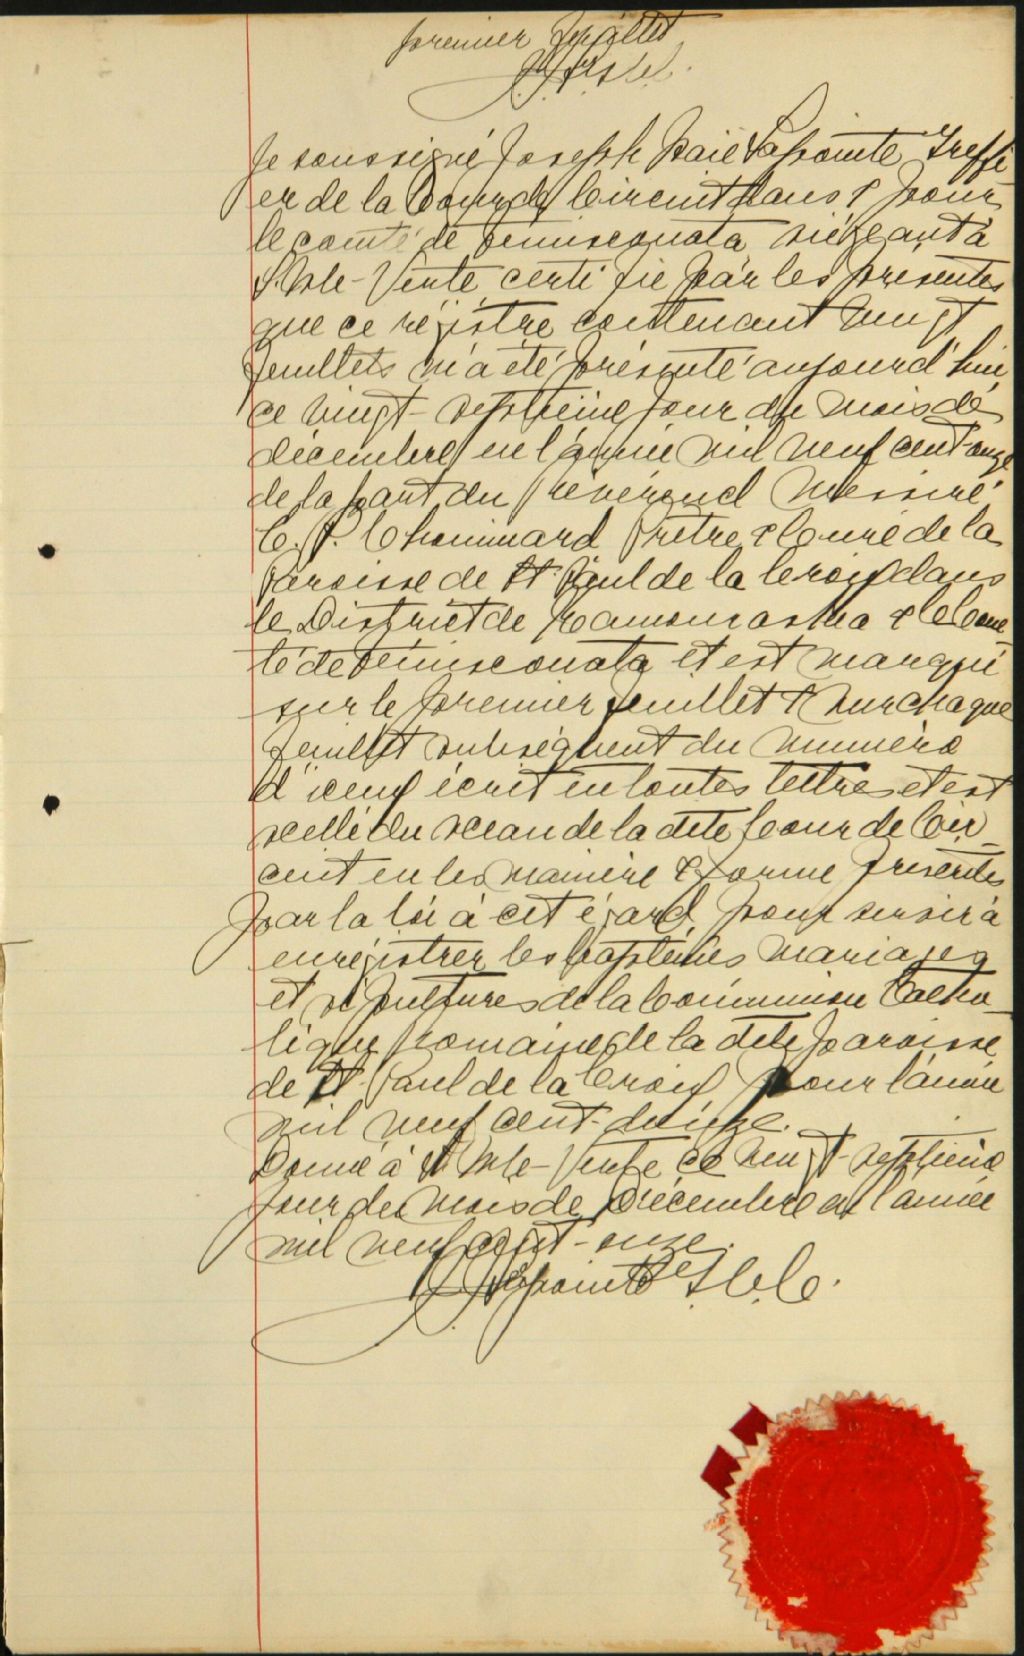 premier feuillet
Je soussigné Joseph Lapointe Greffi
er de la Cour de Circuit dans & pour
le comté de Témiscouata siégeant à
St. Isle-Verte certifie par les présentes
que ce régistre contenant vingt
feuillets m'a été présenté aujourd'hui
ce vingt-septième jour du mois de
décembre en l'année mil neuf cent-onze
de la part du révérend Messire
C. P. Chouinard Prêtre & Curé de la
Paroisse de St. Paul de la Croix dans
le District de Kamouraska & le Com
té de Témiscouata et est marqué
sur le premier feuillet & sur chaque
feuillet subséquent du numéro
d'iceux écrit en toutes lettres et est
scellé du sceau de la dite Cour de Cir
cuit en les manière & forme prescrites
par la loi à cet égard pour servir à
enrégistrer les baptêmes mariages
et sépultures de la Communion Catho
lique Romaine de la dite paroisse
de St. Paul de la Croix pour l'année
mil neuf cent-douze.
Donné à St. Isle-Verte ce vingt-septième
jour du mois de Décembre en l'année
mil neuf cent-onze.
Lapointe G.C.C.